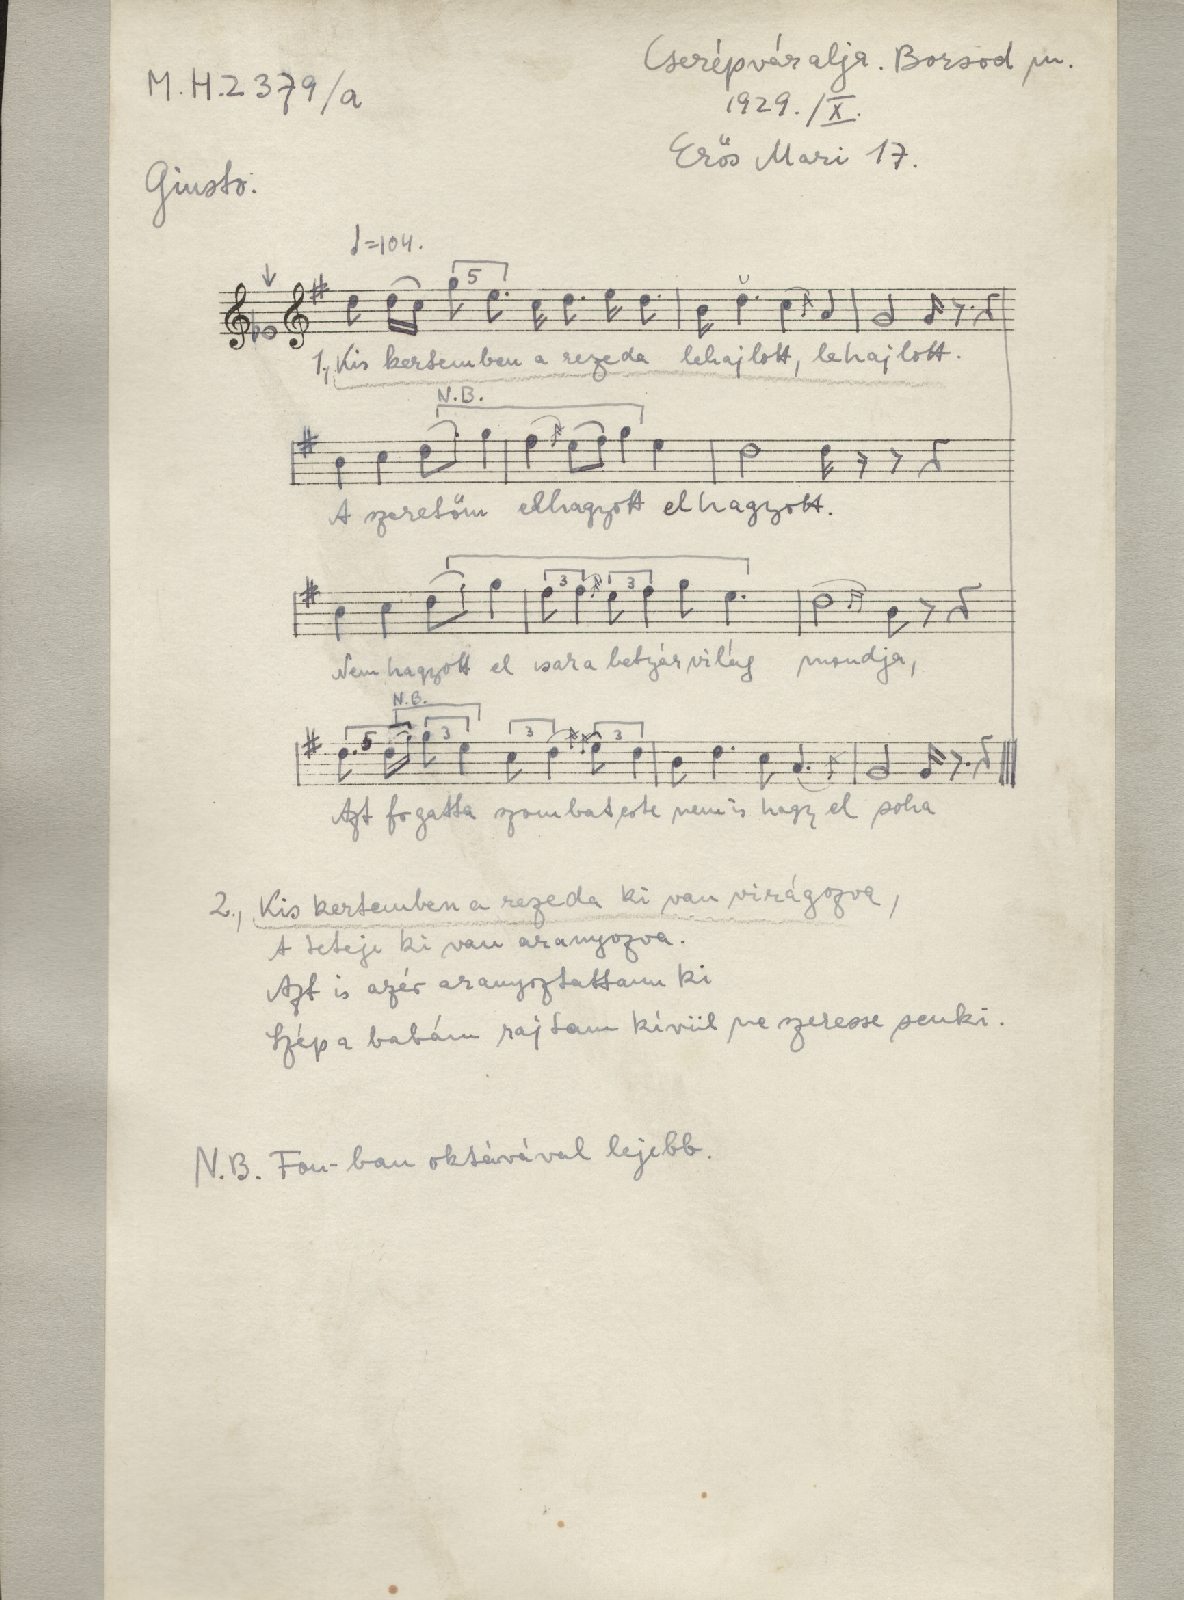 M.H.2379/a
Cserépváralja. Borsod m.
1929./X.
Erős Mari 17.
Giusto.
♩=104.
5
1., Kis kertemben a rezeda lehajlott, lehajlott.
N.B.
A szeretőm elhagyott elhagyott.
3 3
Nem hagyott el csara betyár világ mondja,
N.B.
5 3 3 3
Azt fogatta szombat este nem is hagy el soha
2., Kis kertemben a rezeda ki van virágozva,
A teteje ki van aranyozva.
Azt is azér aranyoztattam ki
Szép a babám rajtam kívül ne szeresse senki.
N.B. Fon-ban oktávával lejebb.